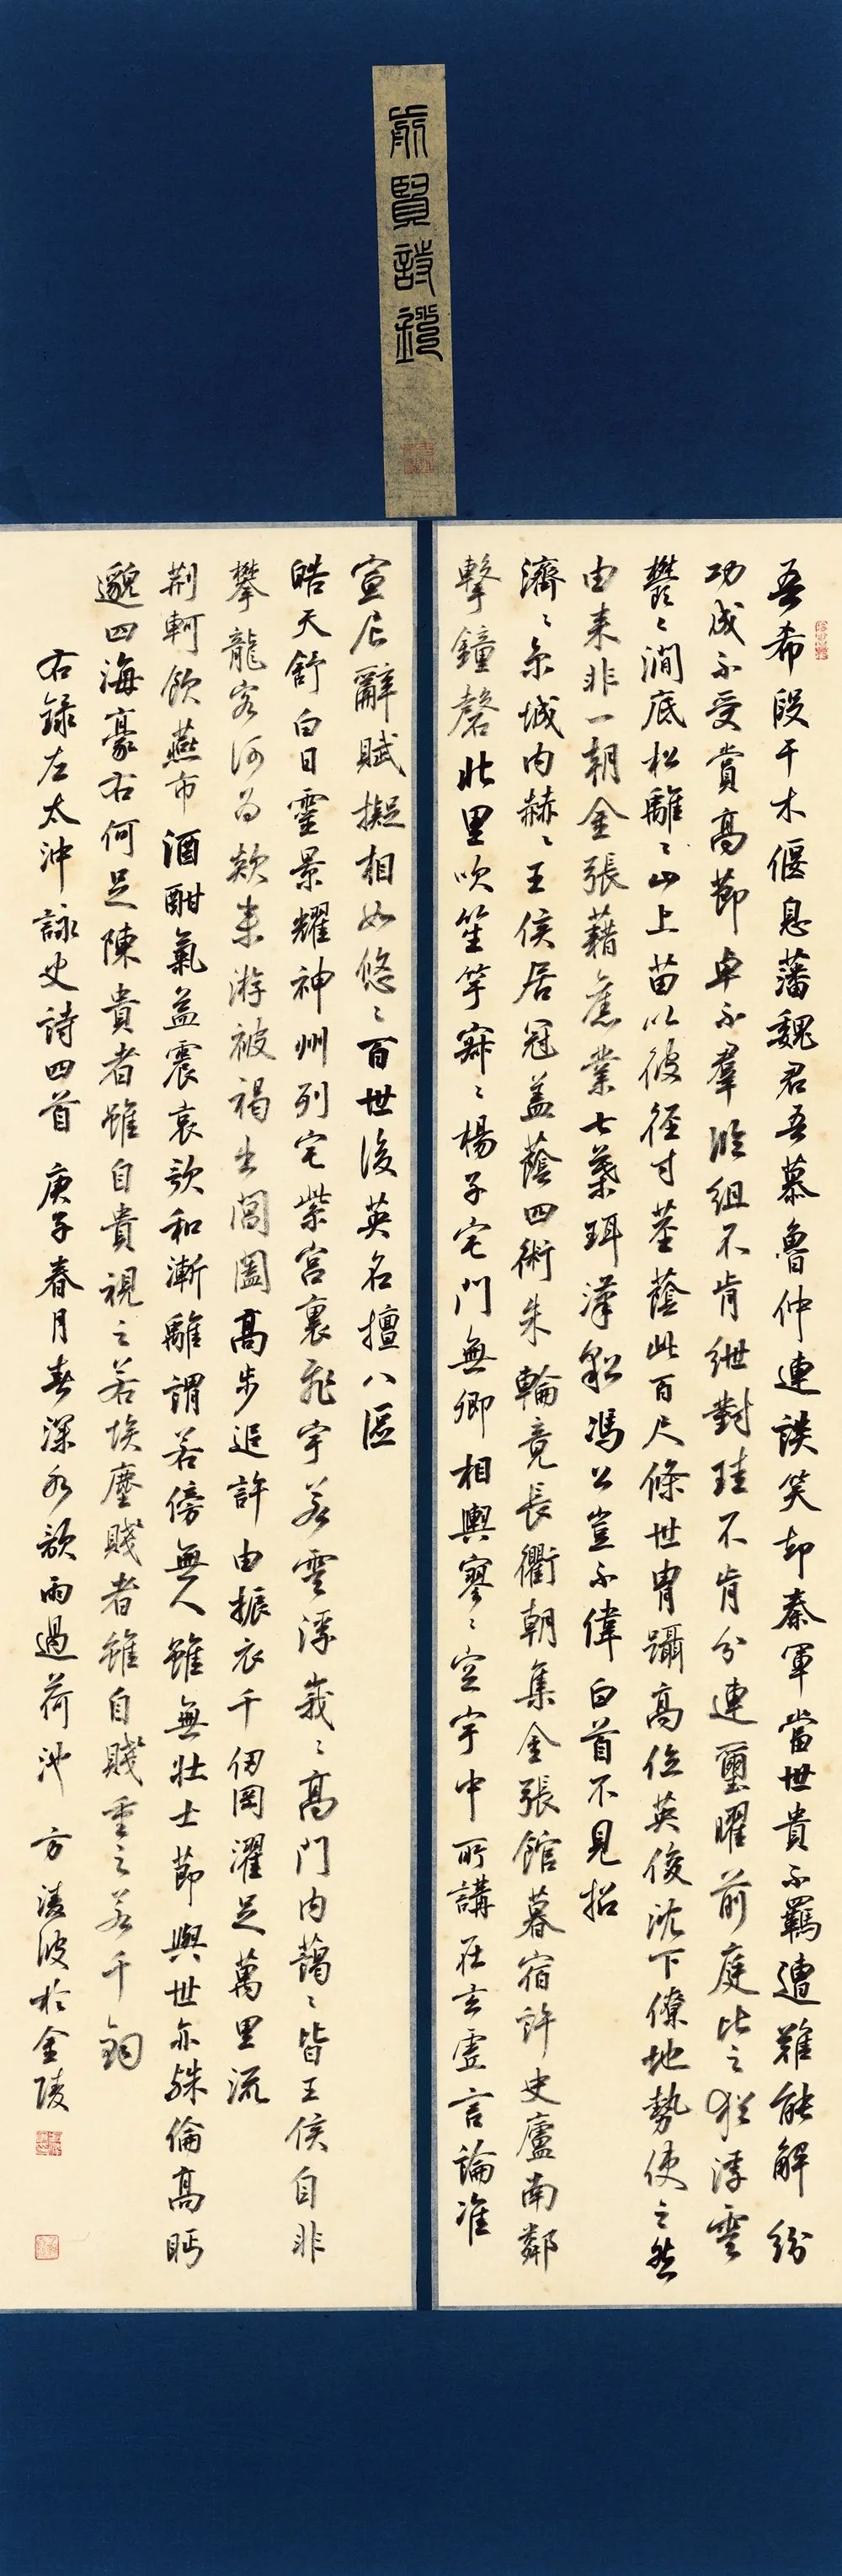 前賢詩鈔
吾希段干木偃息藩魏君吾慕魯仲連談笑却秦軍當世貴不羈遭難能解紛
功成不受賞高節卓不羣臨組不肯緤對珪不肯分連璽曜前庭比之猶浮雲
鬱〻澗底松離〻山上苗以彼徑寸莖蔭此百尺條世胄躡高位英俊沈下僚地勢使之然
由來非一朝金張藉舊業七葉珥漢貂馮公豈不偉白首不見招
濟〻京城內赫〻王侯居冠蓋蔭四術朱輪竟長衢朝集金張館暮宿許史廬南鄰
擊鐘磬北里吹笙竽寂〻楊子宅門無卿相輿寥〻空宇中所講在玄虛言論准
宣尼辭賦擬相如悠〻百世後英名擅八區
皓天舒白日靈景耀神州列宅紫宮裏飛宇若雲浮峩〻高門內藹〻皆王侯自非
攀龍客何為欻來游被褐出閶闔高步追許由振衣千仞岡濯足萬里流
荊軻飲燕市酒酣氣益震哀歌和漸離謂若傍無人雖無壯士節與世亦殊倫高眄
邈四海豪右何足陳貴者雖自貴視之若埃塵賤者雖自賤重之若千鈞
右錄左太沖詠史詩四首庚子春月春深於歙雨過荷池方淩波於金陵